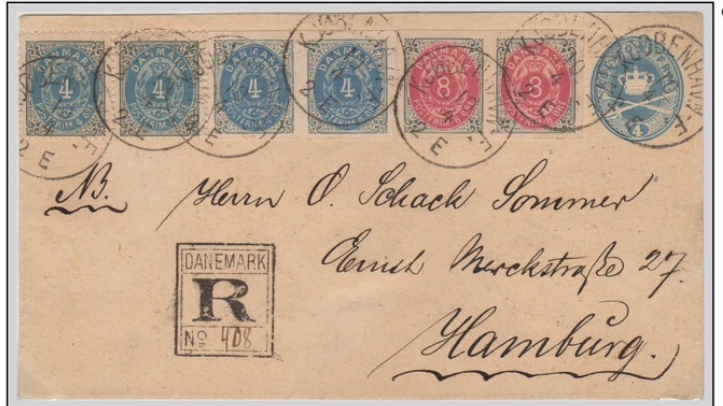 DANMARK 4 POSTFRIM. 4 ØRE
DANMARK 4 POSTFRIM. 4 ØRE
DANMARK 4 POSTFRIM. 4 ØRE
DANMARK 4 POSTFRIM. 4 ØRE
DANMARK 8 POSTFRIM. 8 ØRE
DANMARK 3 POSTFRIM. 3 ØRE
4
KJØBENHAVN
NB. Herrn O. Schack Sommer
Ernst Merckstraße 27.
Hamburg.
DANEMARK
R
No 408